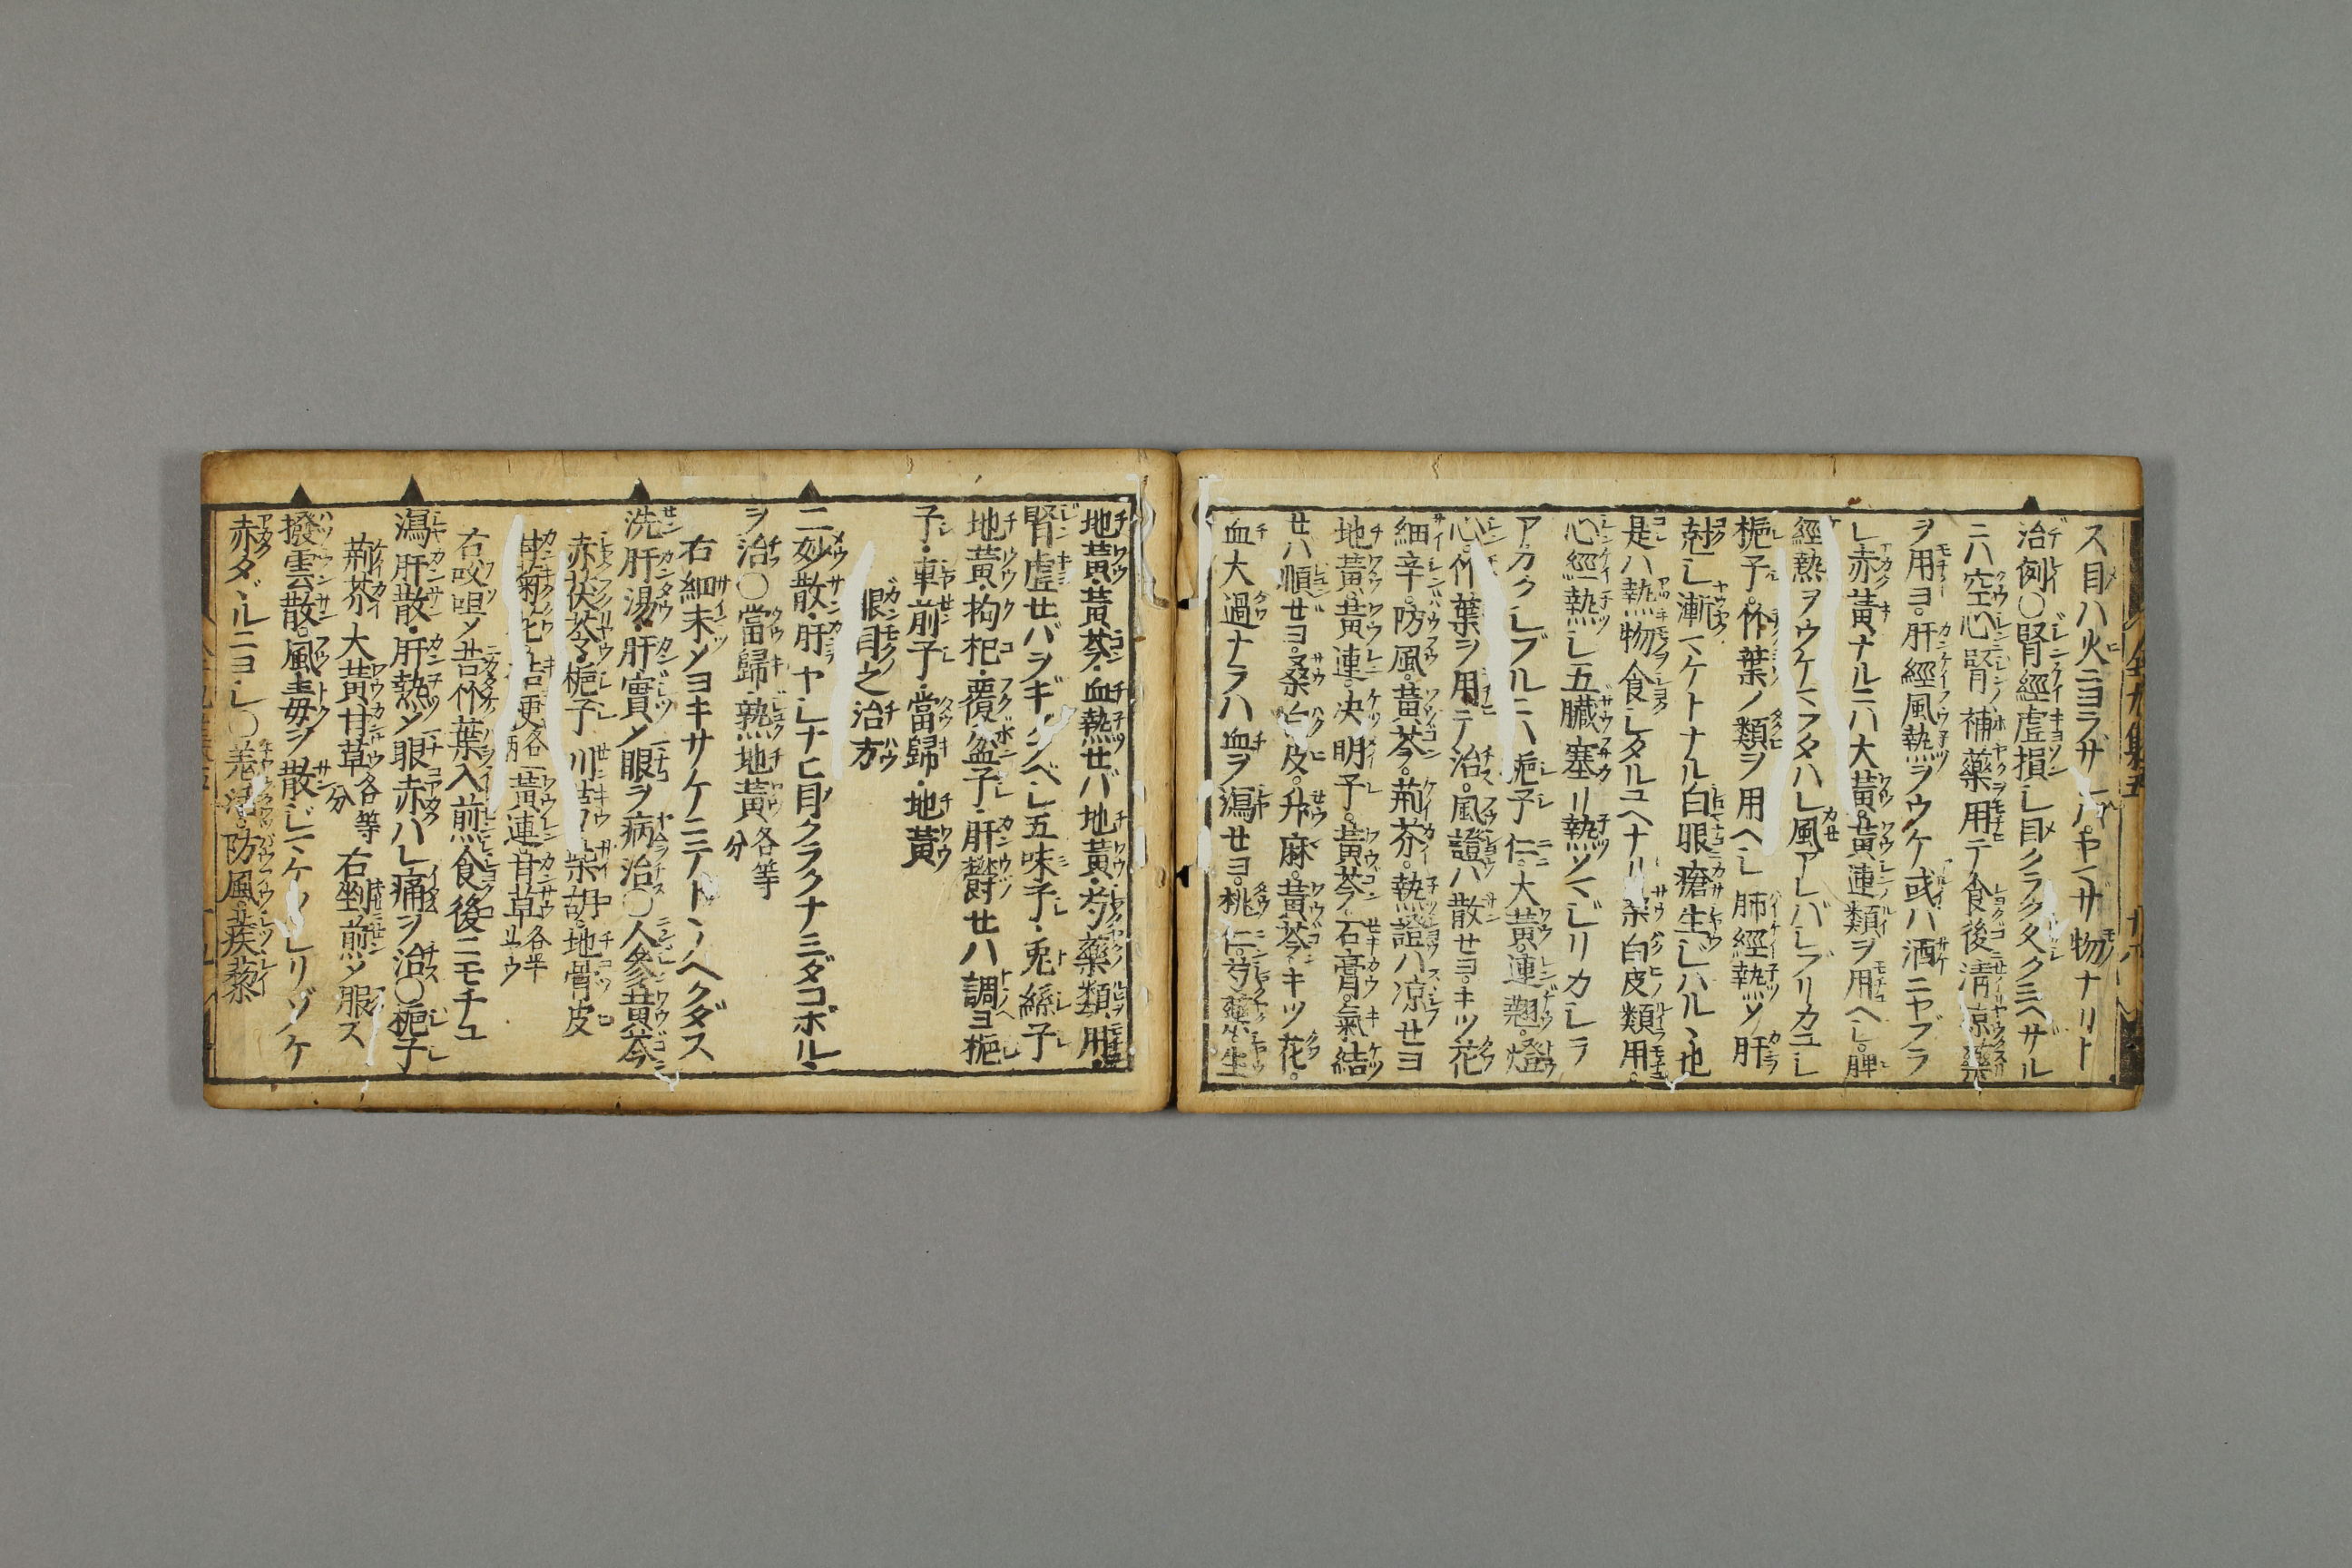 ス目ハ火ニヨラザ ヤマザ物ナリト
治例〇腎經虚損シ目クラクタクミヘザル
ニハ空心腎ノ補藥用テ食後清凉藥
ヲ用ヨ。肝經風熱ヲウケ或ハ酒ニヤブラ
レ赤黄ナルニハ大黄。黄連類ヲ用ヘシ。脾
經熱ヲウケマフタハレ風アレバシブリカユシ
梔子。竹葉ノ類ヲ用ヘシ肺經熱ソ肝
尅シ漸マケトナル白眼瘡生シハル丶也
是ハ熱物食シタルユヘナリ桑白皮類用。
心經熱シ五臓塞リ熱ソマジリカシラ
アカクシブルニハ梔子仁。大黄。連翹。燈
心。竹葉ヲ用テ治。風證ハ散セヨ。キツ花
細辛。防風。黄芩。荊芥。熱證ハ凉セヨ
地黄。黄連。决明子。黄芩。石膏。氣結
セハ順セヨ。桑白皮。升麻。黄芩。キツ花。
血大過ナラハ血ヲ瀉セヨ。桃仁。芍藥。生
地黄・黄芩・血熱セバ地黄・芍藥類用
腎虚セバヲギ ベシ五味子・兎絲子
地黄・枸杞・覆盆子・肝欝セハ調ヨ梔
子・車前子・當歸・地黄
眼目之治方
二妙散・肝ヤシナヒ目クラクナミダコボル丶
ヲ治〇當歸・熟地黄各等分
右細末ソヨキサケニテトヽノヘクダス
洗肝湯・肝實ソ眼ヲ病治〇人參黄芩
赤茯苓・梔子川芎 柴胡。地骨皮
甘菊花。桔更各一兩黄連甘草各半
右㕮咀メ苦竹葉入煎食後ニモチユ
瀉肝散・肝熱ソ眼赤ハレ痛ヲ治〇梔子
荊芥大黄甘草各等分右剉煎メ服ス
撥雲散。風毒ヲ散ジマケ シリゾケ
赤タヾルニヨシ〇羌活防風蒺藜